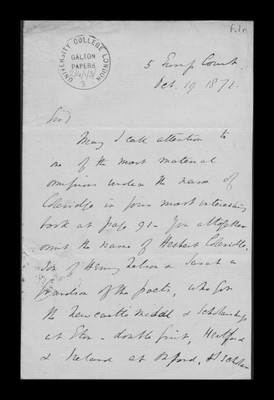 UNIVERSITY COLLEGE LONDON
GALTON
PAPERS
5 Court
Oct. 19 1871
Sir
May I call attention to
one of the most material
omissions under the name of
Coleridge in your most interesting
book at page 91 - You altogether
omit the name of Herbert Coleridge
Son of Henry Nelson & Sarah a
Grandson of the poet, who got
the Newcastle medal & Scholarship
at Eton - double first, Hertford
& Ireland at Oxford, & Scholar